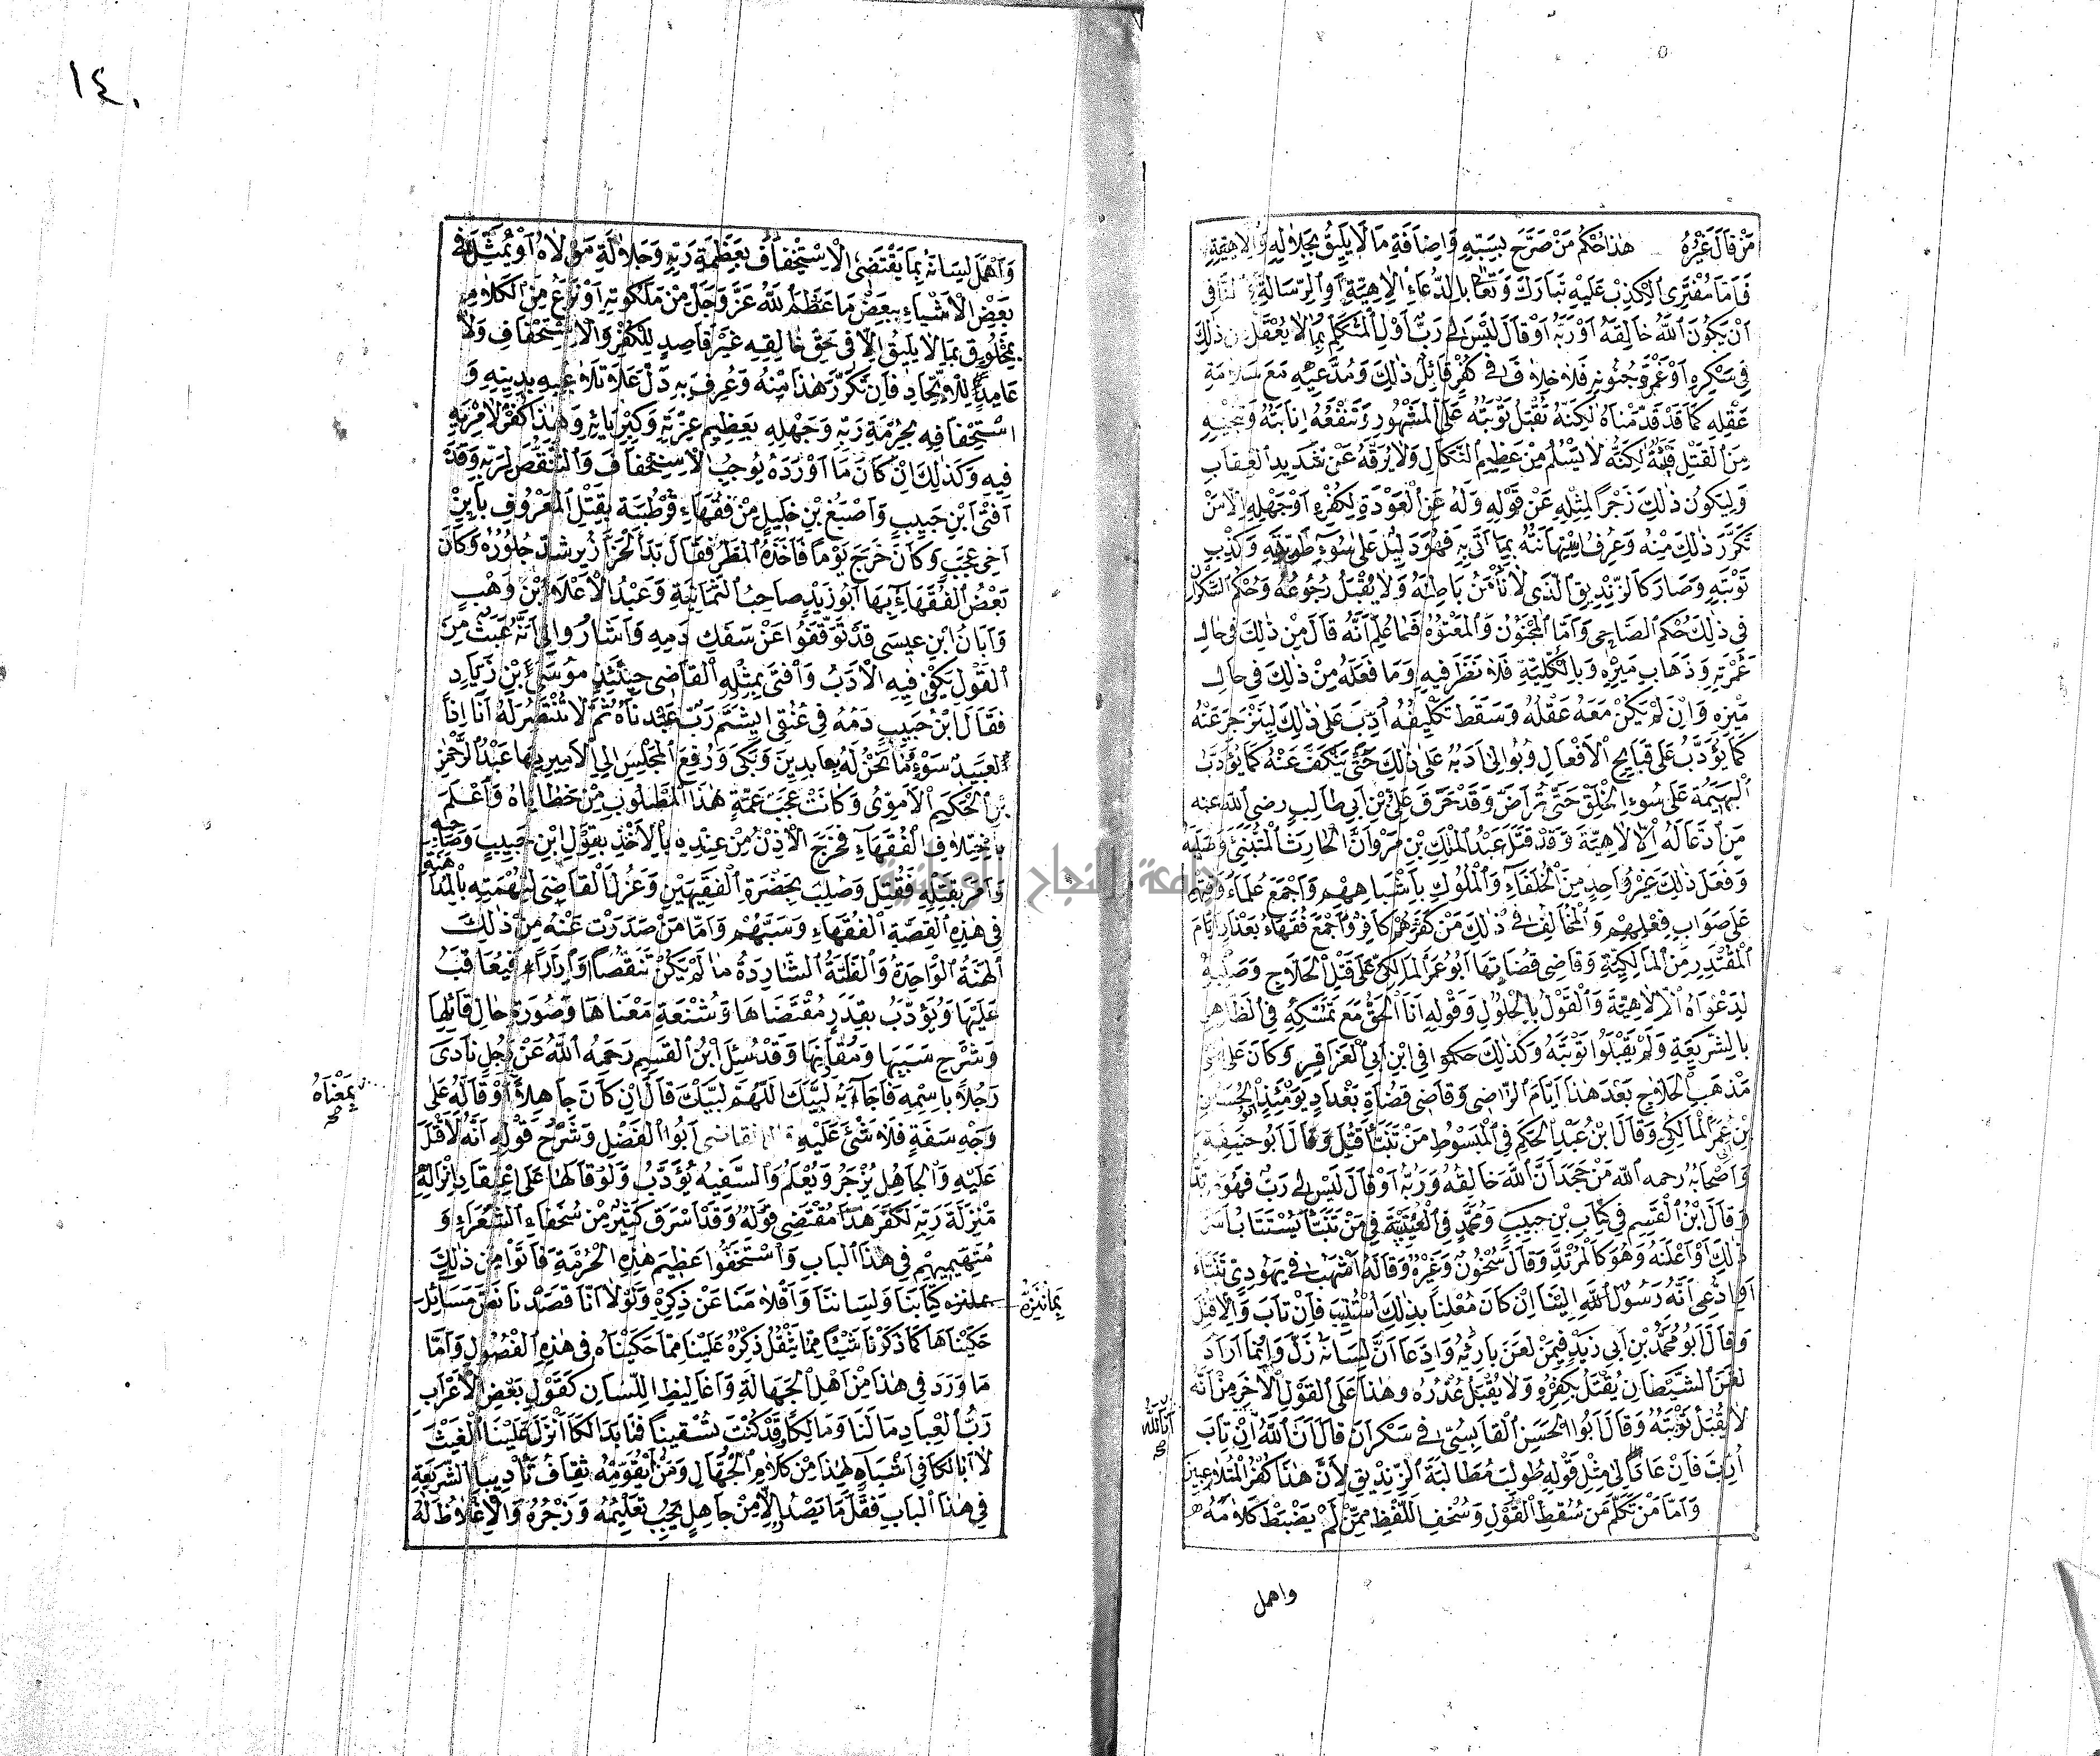 ١٤٠
مَنْ قَالَ غَيْرُهُ هٰذَا حُكْمُ مَنْ صَرَّحَ بِسَبِّهِ وَاِضَافَةِ مَا لَا يَلِيقُ بِجَلَالِهِ وَالْاِهِيَّتِهِ
فَاَمَّا مُفْتَرِى الْكَذِبَ عَلَيْهِ تَبَارَكَ وَتَعَالٰى بِادِّعَاءِ الْاِلٰهِيَّةِ اَوِ الرِّسَالَةِ اَوِ النَّافِى
اَنْ يَكُونَ اللّٰهُ خَالِقَهُ اَوْ رَبَّهُ اَوْ قَالَ لَيْسَ لِى رَبٌّ اَوِ الْمُتَكَلِّمِ بِمَا لَا يُعْقَلُ مِنْ ذٰلِكَ
فِى سُكْرِهِ اَوْ غَمْرَةِ جُنُونِهِ فَلَا خِلَافَ فِى كُفْرِ قَائِلِ ذٰلِكَ وَمُدَّعِيهِ مَعَ سَلَامَةِ
عَقْلِهِ كَمَا قَدْ قَدَّمْنَاهُ لٰكِنَّهُ تُقْبَلُ تَوْبَتُهُ عَلَى الْمَشْهُورِ وَتَنْفَعُهُ اِنَابَتُهُ وَتُنَجِّيهِ
مِنَ الْقَتْلِ فَيْئَتُهُ لٰكِنَّهُ لَا يَسْلَمُ مِنْ عَظِيمِ النَّكَالِ وَلَا يُرَفَّهُ عَنْ شَدِيدِ الْعِقَابِ
وَلِيَكُونَ ذٰلِكَ زَجْرًا لِمِثْلِهِ عَنْ قَوْلِهِ وَلَهُ عَنِ الْعَوْدَةِ لِكُفْرِهِ اَوْ جَهْلِهِ اِلَّا مَنْ
تَكَرَّرَ ذٰلِكَ مِنْهُ وَعُرِفَ اسْتِهَانَتُهُ بِمَا اَتٰى بِهِ فَهُوَ دَلِيلٌ عَلٰى سُوءِ طَوِيَّتِهِ وَكَذِبِ
تَوْبَتِهِ وَصَارَ كَالزِّنْدِيقِ الَّذِى لَا نَأْمَنُ بَاطِنَهُ وَلَا يُقْبَلُ رُجُوعُهُ وَحُكْمُ السَّكْرَانِ
فِى ذٰلِكَ حُكْمُ الصَّاحِى وَاَمَّا الْمَجْنُونُ وَالْمَعْتُوهُ فَمَا عُلِمَ اَنَّهُ قَالَ مِنْ ذٰلِكَ فِى حَالِ
غَمْرَتِهِ وَذَهَابِ مَيْزِهِ وَبِالْكُلِّيَّةِ فَلَا نَظَرَ فِيهِ وَمَا فَعَلَهُ مِنْ ذٰلِكَ فِى حَالِ
مَيْزِهِ وَاِنْ لَمْ يَكُنْ مَعَهُ عَقْلُهُ وَسَقَطَ تَكْلِيفُهُ اُدِّبَ عَلٰى ذٰلِكَ لِيَنْزَجِرَ عَنْهُ
كَمَا يُؤَدَّبُ عَلٰى قَبَايِحِ الْاَفْعَالِ وَيُوَالٰى اَدَبُهُ عَلٰى ذٰلِكَ حَتّٰى يَنْكَفَّ عَنْهُ كَمَا يُؤَدَّبُ
الْبَهِيمَةُ عَلٰى سُوءِ الْخُلُقِ حَتّٰى تُرَاضَ وَقَدْ حَرَّقَ عَلِىُّ بْنُ اَبِى طَالِبٍ رضى الله عنه
مَنْ اَدَّعَا لَهُ الْاِلٰهِيَّةَ وَقَدْ قَتَلَ عَبْدُ الْمَلِكِ بْنِ مَرْوَانَ الْحَارِثَ الْمُتَنَبِّىَ وَصَلَبَهُ
وَفَعَلَ ذٰلِكَ غَيْرُ وَاحِدٍ مِنَ الْخُلَفَاءِ وَالْمُلُوكِ بِاَشْبَاهِهِمْ وَاَجْمَعَ عُلَمَاءُ وَقْتِهِمْ
عَلٰى صَوَابِ فِعْلِهِمْ وَالْمُخَالِفُ فِى ذٰلِكَ مِنْ كُفْرِهِمْ كَافِرٌ وَاَجْمَعَ فُقَهَاءُ بَغْدَادَ اَيَّامَ
الْمُقْتَدِرِ مِنَ الْمَالِكِيَّةِ وَقَاضِى قُضَاتِهَا اَبُو عُمَرَ الْمَالِكِىُّ عَلٰى قَتْلِ الْحَلَّاجِ وَصَلْبِهِ
لِدَعْوَاهُ الْاِلٰهِيَّةَ وَالْقَوْلَ بِالْحُلُولِ وَقَوْلِهِ اَنَا الْحَقُّ مَعَ تَمَسُّكِهِ فِى الظَّاهِرِ
بِالشَّرِيعَةِ وَلَمْ يَقْبَلُوا تَوْبَتَهُ وَكَذٰلِكَ حكموا فِى ابْنِ اَبِى الْعَزَاقِرِ وَكَانَ عَلٰى
مَذْهَبِ الْحَلَّاجِ بَعْدَ هٰذَا اَيَّامَ الرَّاضِى وَقَاضِى قُضَاةِ بَغْدَادَ يَوْمَئِذٍ الْحُسَيْنِ
بْنِ عُمَرَ الْمَالِكِى وَقَالَ ابْنُ عَبْدِ الْحَكَمِ فِى الْمَبْسُوطِ مَنْ تَنَبَّأَ قُتِلَ وَقَالَ اَبُو حَنِيفَةَ
وَاَصْحَابُهُ رحمه الله مَنْ جَحَدَ اَنَّ اللّٰهَ خَالِقُهُ وَرَبُّهُ اَوْ قَالَ لَيْسَ لِى رَبٌّ فَهُوَ مُرْتَدٌّ
وَقَالَ ابْنُ الْقَسِمِ فِى كِتَابِ بْنِ حَبِيبٍ وَمُحَمَّدٍ فِى الْعُتْبِيَّةِ فِى مَنْ تَنَبَّأَ يُسْتَتَابُ اَسَرَّ
ذٰلِكَ اَوْ اَعْلَنَهُ وَهُوَ كَالْمُرْتَدِّ وَقَالَ سُحْنُونٌ وَغَيْرُهُ وَقَالَهُ اَشْهَبُ فِى يَهُودِىٍّ تَنَبَّاَ
اَوِ ادَّعٰى اَنَّهُ رَسُولُ اللّٰهِ اِلَيْنَا اِنْ كَانَ مُعْلِنًا بِذٰلِكَ اسْتُتِيبَ فَاِنْ تَابَ وَاِلَّا قُتِلَ
وَقَالَ اَبُو مُحَمَّدِ بْنِ اَبِى زَيْدٍ فِيمَنْ لَعَنَ بَارِئَهُ وَادَّعَا اَنَّ لِسَانَهُ زَلَّ وَاِنَّمَا اَرَادَ
لَعْنَ الشَّيْطَانِ يُقْتَلُ بِكُفْرِهِ وَلَا يُقْبَلُ عُذْرُهُ وهٰذَا عَلَى الْقَوْلِ الْاٰخَرِ مِنْ اَنَّهُ
لَا يُقْبَلُ تَوْبَتُهُ وَقَالَ اَبُوا الْحَسَنِ الْقَابِسِىُّ فِى سَكْرَانَ قَالَ اَنَا اللّٰهُ اِنْ تَابَ
اُدِّبَ فَاِنْ عَادَ اِلٰى مِثْلِ قَوْلِهِ طُولِبَ مُطَالَبَةَ الزِّنْدِيقِ لِاَنَّ هٰذَا كُفْرُ الْمُتَلَاعِبِينَ
وَاَمَّا مَنْ تَكَلَّمَ مِنْ سُقْطِ الْقَوْلِ وَسُخْفِ اللَّفْظِ مِمَّنْ لَمْ يَضْبِطْ كَلَامَهُ
اَنَا اللّٰهُ صح
واهمل
وَاَهْمَلَ لِسَانَهُ بِمَا يَقْتَضِى الْاِسْتِخْفَافَ بِعَظَمَةِ رَبِّهِ وَجَلَالَةِ مَوْلَاهُ اَوْ يُمَثِّلَ فِى
بَعْضِ الْاَشْيَاءِ بِبَعْضِ مَا عَظَّمَ اللّٰهُ عَزَّ وَجَلَّ مِنْ مَلَكُوتِهِ اَوْ نَزَعَ مِنَ الْكَلَامِ
بِمَخْلُوقٍ بِمَا لَا يَلِيقُ اِلَّا فِى حَقِّ خَالِقِهِ غَيْرَ قَاصِدٍ لِلْكُفْرِ وَالْاِسْتِخْفَافِ وَلَا
عَامِدٍ لِلْاِلْحَادِ فَاِنْ تَكَرَّرَ هٰذَا مِنْهُ وَعُرِفَ بِهِ دَلَّ عَلٰى تَلَاعُبِهِ بِدِينِهِ وَ
اسْتِخْفَافِهِ بِحُرْمَةِ رَبِّهِ وَجَهْلِهِ بِعَظِيمِ عِزَّتِهِ وَكِبْرِيَائِهِ وَهٰذَا كُفْرٌ لَا مِرْيَةَ
فِيهِ وَكَذٰلِكَ اِنْ كَانَ مَا اَوْرَدَهُ يُوجِبُ الْاِسْتِخْفَافَ وَالتَّنَقُّصَ لِرَبِّهِ وَقَدْ
اَفْتٰى ابْنِ حَبِيبٍ وَاَصْبَغُ بْنِ خَلِيلٍ مِنْ فُقَهَاءِ قُرْطُبَةَ بِقَتْلِ الْمَعْرُوفِ بِابْنِ
اَخِى عَجَبٍ وَكَانَ خَرَجَ يَوْمًا فَاَخَذَهُ الْمَطَرُ فَقَالَ بَدَأَ الْخَرَّازُ يَرُشُّ جُلُودَهُ وَكَانَ
بَعْضُ الْفُقَهَاءِ بِهَا اَبُو زَيْدٍ صَاحِبُ الثَّمَانِيَةِ وَعَبْدُ الْاَعْلٰى بْنُ وَهْبٍ
وَاَبَانُ ابْنِ عِيسَى قَدْ تَوَقَّفُوا عَنْ سَفْكِ دَمِهِ وَاَشَارُوا اِلٰى اَنَّهُ عَبَثٌ مِنَ
الْقَوْلِ يَكْفِى فِيهِ الْاَدَبُ وَاَفْتٰى بِمِثْلِهِ الْقَاضِى حِينَئِذٍ مُوسٰى بْنِ زِيَادٍ
فَقَالَ ابْنُ حَبِيبٍ دَمُهُ فِى عُنُقِى اَيُشْتَمُ رَبٌّ عَبَدْنَاهُ ثُمَّ لَا نَنْتَصِرُ لَهُ اَنَا اِذًا
لَعَبِيدُ سَوْءٍ مَا نَحْنُ لَهُ بِعَابِدِينَ وَبَكٰى وَرُفِعَ الْمَجْلِسُ اِلَى الْاَمِيرِ بِهَا عَبْدُ الرَّحْمٰنِ
بْنِ الْحَكَمِ الْاَمَوِىُّ وَكَانَتْ عَجَبُ عَمَّةِ هٰذَا الْمَطْلُوبِ مِنْ حَظَايَاهُ وَاُعْلِمَ
بِاخْتِلَافِ الْفُقَهَاءِ فَخَرَجَ الْاِذْنُ مِنْ عِنْدِهِ بِالْاَخْذِ بِقَوْلِ ابْنِ حَبِيبٍ وَصَاحِبِهِ
وَاَمَرَ بِقَتْلِهِ فَقُتِلَ وَصُلِبَ بِحَضْرَةِ الْفَقِيهَيْنِ وَعُزِلَ الْقَاضِى لِتُهْمَتِهِ بِالْمُدَاهَنَةِ
فِى هٰذِهِ الْقِصَّةِ الْفُقَهَاءِ وَسَبَّهُمْ وَاَمَّا مَنْ صَدَرَتْ عَنْهُ مِنْ ذٰلِكَ
الْهَنَةُ الْوَاحِدَةُ وَالْفَلْتَةُ الشَّارِدَةُ مَا لَمْ يَكُنْ تَنَقُّصًا وَاِزْرَاءً فَيُعَاقَبُ
عَلَيْهَا وَيُؤَدَّبُ بِقَدَرِ مُقْتَضَاهَا وَشُنْعَةِ مَعْنَاهَا وَصُورَةِ حَالِ قَائِلِهَا
وَشَرْحِ سَبَبِهَا وَمُقَارِنِهَا وَقَدْ سُئِلَ ابْنُ الْقَسِمِ رَحِمَهُ اللّٰهُ عَنْ رَجُلٍ نَادٰى
رَجُلًا بِاسْمِهِ فَاَجَابَهُ لَبَّيْكَ اللّٰهُمَّ لَبَّيْكَ قَالَ اِنْ كَانَ جَاهِلًا اَوْ قَالَهُ عَلٰى
وَجْهِ سَفَهٍ فَلَا شَئَ عَلَيْهِ قال القاضى اَبُوا الْفَضْلِ وَشَرْحُ قَوْلِهِ اَنَّهُ لَا قَتْلَ
عَلَيْهِ وَالْجَاهِلُ يُزْجَرُ وَيُعْلَمُ وَالسَّفِيهُ يُؤَدَّبُ وَلَوْ قَالَهَا عَلٰى اعْتِقَادِ اِنْزَالِهِ
مَنْزِلَةَ رَبِّهِ لَكَفَرَ هٰذَا مُقْتَضٰى قَوْلِهِ وَقَدْ اَسْرَفَ كَثِيرٌ مِنْ سُخَفَاءِ الشُّعَرَاءِ وَ
مُتَّهَمِيهِمْ فِى هٰذَا الْبَابِ وَاسْتَخَفُّوا عَظِيمَ هٰذِهِ الْحُرْمَةِ فَاَتَوْا مِنْ ذٰلِكَ
كِتَابَنَا وَلِسَانَنَا وَاَقْلَامَنَا عَنْ ذِكْرِهِ وَلَوْلَا اَنَّا قَصَدْنَا نَصَّ مَسَائِلَ
حَكَيْنَاهَا كَمَا ذَكَرْنَا شَيْئًا مِمَّا يَثْقُلُ ذِكْرُهُ عَلَيْنَا مِمَّا حَكَيْنَاهُ فِى هٰذِهِ الْفُصُولِ وَاَمَّا
مَا وَرَدَ فِى هٰذَا مِنْ اَهْلِ الْجَهَالَةِ وَاَغَالِيطِ اللِّسَانِ كَقَوْلِ بَعْضِ الْاَعْرَابِ
رَبُّ الْعِبَادِ مَا لَنَا وَمَا لَكَا قَدْ كُنْتَ تَسْقِينَا فَمَا بَدَا لَكَا اَنْزِلْ عَلَيْنَا الْغَيْثَ
لَا اَبَا لَكَا فِى اَشْبَاهٍ لِهٰذَا مِنْ كَلَامِ الْجُهَّالِ وَمَنْ لَمْ يُقَوِّمْهُ ثِقَافُ تَأْدِيبِ الشَّرِيعَةِ
فِى هٰذَا الْبَابِ فَقَلَّ مَا يَصْدُرُ اِلَّا مِنْ جَاهِلٍ يَجِبُ تَعْلِيمُهُ وَزَجْرُهُ وَالْاِغْلَاظُ لَهُ
بِمَعْنَاهُ صح
بِمَا نُنَزِّهُ
جامعة النجاح الوطنية